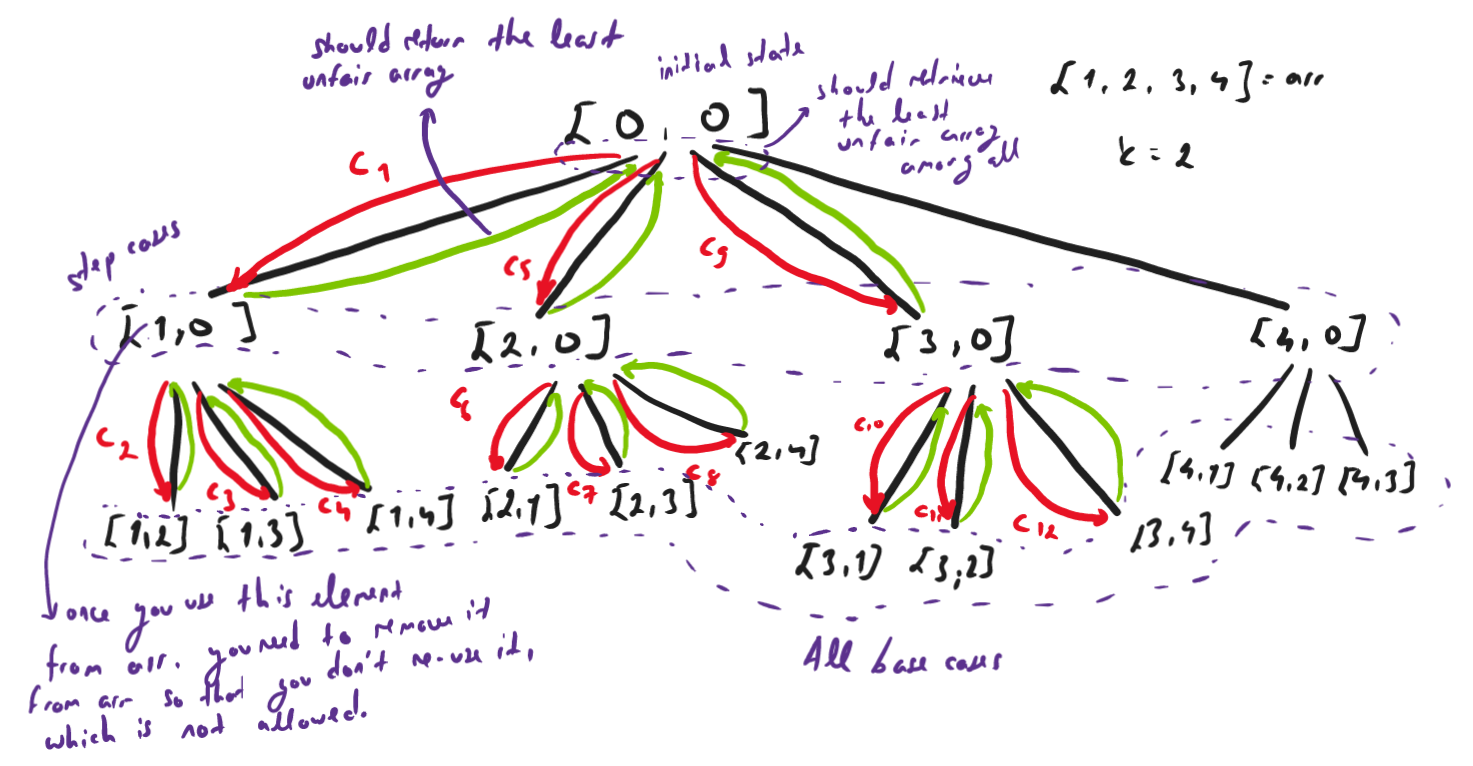 should return the least
unfair array
initial state
[0, 0]
should retrieve
the least
unfair array
among all
[1, 2, 3, 4] = arr
k = 2
C1
C5
C9
step cases
[1,0]
[2,0]
[3,0]
[4,0]
C2
C3
C4
C6
C7
C8
C10
C11
C12
[1,2]
[1,3]
[1,4]
[2,1]
[2,3]
[2,4]
[3,1]
[3,2]
[3,4]
[4,1]
[4,2]
[4,3]
once you use this element
from arr. you need to remove it
from arr so that you don't re-use it,
which is not allowed.
All base cases